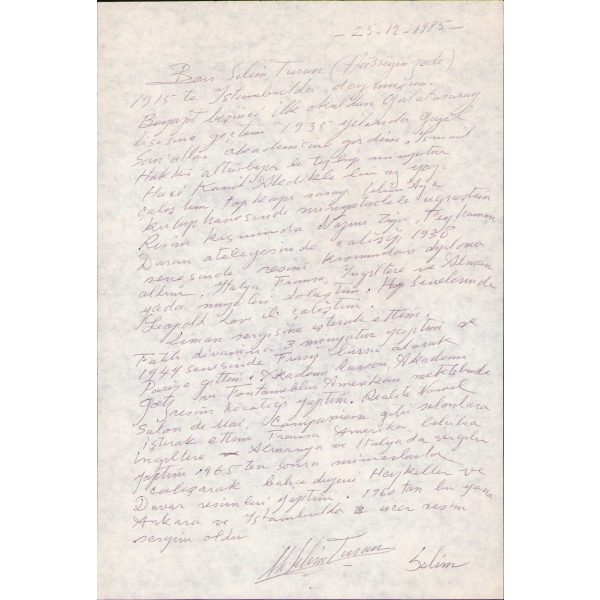 - 25-12-1985 -
Ben Selim Turan (Hüsseyin zade)
1915 te İstanbulda doğmuşum.
Beyazit beşinci ilk okuldan Galatasaray
lisesine geçtim 1935 yılarıda Güzel
San'atlar akademisine girdim. İsmail
Hakkı altunbezer le tezhip minyatur
Hacı Kamil Akdikle en az yazı
çalıştım. Topkapı saray
kutupkanesinde minyatürlerle uğraştım
Resim kısmında Nazmi Ziya, Feyhaman
Duran atelyesinde çalışıp 1938
senesinde resim kısmından diploma
aldım. Fransa, İngiltere ve Alman
yada muzeleri dolaştım. senelerinde
Leopold Levi ile çalıştım.
Liman sergisine iştirak ettim.
Fatih divanına 3 minyatur yaptım ve
1944 senesinde Fransız bursu alarak
Parise gittim. Akademi Ranson, Akademi
Goetz ve Fontainebleu Amerikan mektebinde
resim hocalığı yaptım. Realite Nouvel
Salon de Mai, Comparaison gibi salonlara
iştirak ettim Fransa Amerika Belçika
İngiltere Almanya ve İtalyada sergiler
yaptım 1965 ten sonra mimarlarla
çalışarak bahçe Heykeller ve
Duvar resimleri yaptım. 1960 tan bu yana
Ankara ve İstanbulda üçer resim
sergim oldu
Selim Turan
Selim